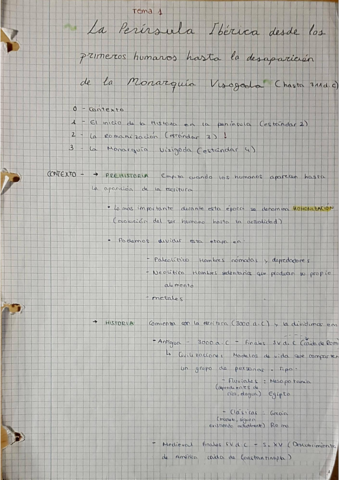 Tema 1
La Península Ibérica desde los
primeros humanos hasta la desaparición
de la Monarquía Visogoda (hasta 711 d.C)
0 - Contexto
1 - El inicio de la historia en la península (estándar 2)
2 - La romanización (estándar 3)
3 - La Monarquía Visigoda (estándar 4)
CONTEXTO - → PREHISTORIA Empieza cuando los humanos aparecen hasta
la aparición de la escritura
• Lo más importante durante esta época se denomina HOMINIZACIÓN
(evolución del ser humano hasta la actualidad)
• Podemos dividir esta etapa en:
- Paleolítico hombres nómadas y depredadores
- Neolítico hombres sedentarios que producen su propio
alimento
- metales
→ HISTORIA Comienza con la escritura (3000 a.C) y la dividimos en:
• Antigua - 3000 a.C - finales S.V d.C
↳ Civilizaciones Maneras de vida que comparten
un grupo de personas - tipos:
- Fluviales: Mesopotamia
Egipto
- Clásicas: Grecia
Roma
• Medieval finales S.V d.C - S. XV (Descubrimiento
de América caída de Constantinopla)